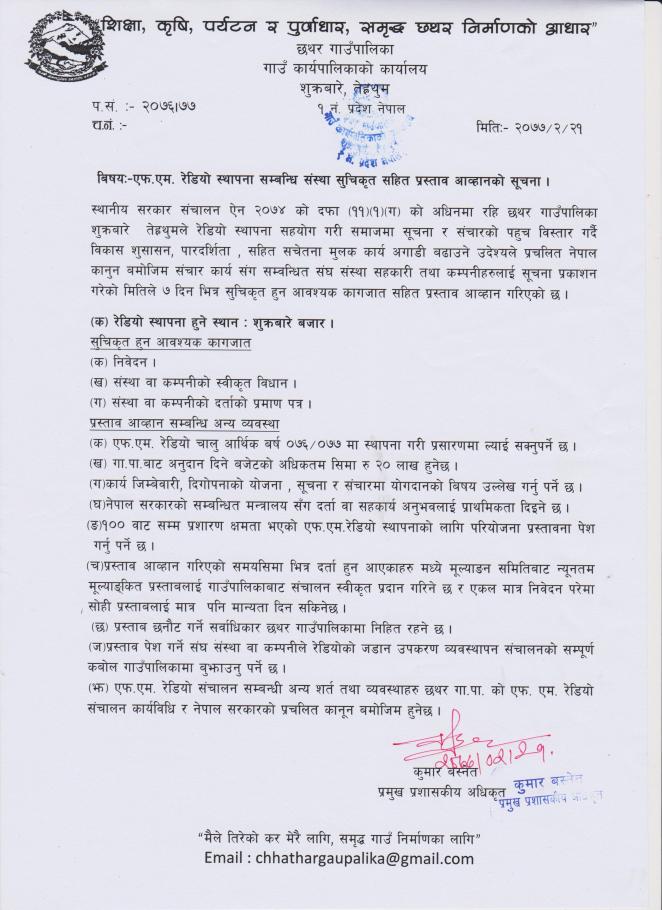 शिक्षा, कृषि, पर्यटन र पुर्वाधार, समृद्ध छथर निर्माणको आधार”
छथर गाउँपालिका
गाउँ कार्यपालिकाको कार्यालय
शुक्रबारे, तेह्रथुम
१ नं. प्रदेश नेपाल
प.सं. :- २०७६।७७
च.नं. :-
मिति:- २०७७/२/२१
बिषय:-एफ.एम. रेडियो स्थापना सम्बन्धि संस्था सुचिकृत सहित प्रस्ताव आव्हानको सूचना ।
स्थानीय सरकार संचालन ऐन २०७४ को दफा (११)(१)(ग) को अधिनमा रहि छथर गाउँपालिका
शुक्रबारे तेह्रथुमले रेडियो स्थापना सहयोग गरी समाजमा सूचना र संचारको पहुच विस्तार गर्दै
विकास शुसासन, पारदर्शिता , सहित सचेतना मुलक कार्य अगाडी बढाउने उदेश्यले प्रचलित नेपाल
कानुन बमोजिम संचार कार्य संग सम्बन्धित संघ संस्था सहकारी तथा कम्पनीहरुलाई सूचना प्रकाशन
गरेको मितिले ७ दिन भित्र सुचिकृत हुन आवश्यक कागजात सहित प्रस्ताव आव्हान गरिएको छ ।
(क) रेडियो स्थापना हुने स्थान : शुक्रबारे बजार ।
सुचिकृत हुन आवश्यक कागजात
(क) निवेदन ।
(ख) संस्था वा कम्पनीको स्वीकृत विधान ।
(ग) संस्था वा कम्पनीको दर्ताको प्रमाण पत्र ।
प्रस्ताव आव्हान सम्बन्धि अन्य व्यवस्था
(क) एफ.एम. रेडियो चालु आर्थिक बर्ष ०७६/०७७ मा स्थापना गरी प्रसारणमा ल्याई सक्नुपर्ने छ ।
(ख) गा.पा.बाट अनुदान दिने बजेटको अधिकतम सिमा रु २० लाख हुनेछ ।
(ग)कार्य जिम्बेवारी, दिगोपनाको योजना , सूचना र संचारमा योगदानको बिषय उल्लेख गर्नु पर्ने छ ।
(घ)नेपाल सरकारको सम्बन्धित मन्त्रालय सँग दर्ता वा सहकार्य अनुभवलाई प्राथमिकता दिइने छ ।
(ङ)१०० वाट सम्म प्रशारण क्षमता भएको एफ.एम.रेडियो स्थापनाको लागि परियोजना प्रस्तावना पेश
गर्नु पर्ने छ ।
(च)प्रस्ताव आव्हान गरिएको समयसिमा भित्र दर्ता हुन आएकाहरु मध्ये मूल्याङन समितिबाट न्यूनतम
मूल्याङ्कित प्रस्तावलाई गाउँपालिकाबाट संचालन स्वीकृत प्रदान गरिने छ र एकल मात्र निवेदन परेमा
सोही प्रस्तावलाई मात्र पनि मान्यता दिन सकिनेछ ।
(छ) प्रस्ताव छनौट गर्ने सर्वाधिकार छथर गाउँपालिकामा निहित रहने छ ।
(ज)प्रस्ताव पेश गर्ने संघ संस्था वा कम्पनीले रेडियोको जडान उपकरण व्यवस्थापन संचालनको सम्पूर्ण
कबोल गाउँपालिकामा बुझाउनु पर्ने छ ।
(झ) एफ.एम. रेडियो संचालन सम्बन्धी अन्य शर्त तथा व्यवस्थाहरु छथर गा.पा. को एफ. एम. रेडियो
संचालन कार्यविधि र नेपाल सरकारको प्रचलित कानून बमोजिम हुनेछ ।
कुमार बस्नेत
प्रमुख प्रशासकीय अधिकृत
कुमार बस्नेत
प्रमुख प्रशासकीय
“मैले तिरेको कर मेरै लागि, समृद्ध गाउँ निर्माणका लागि”
Email : chhathargaupalika@gmail.com